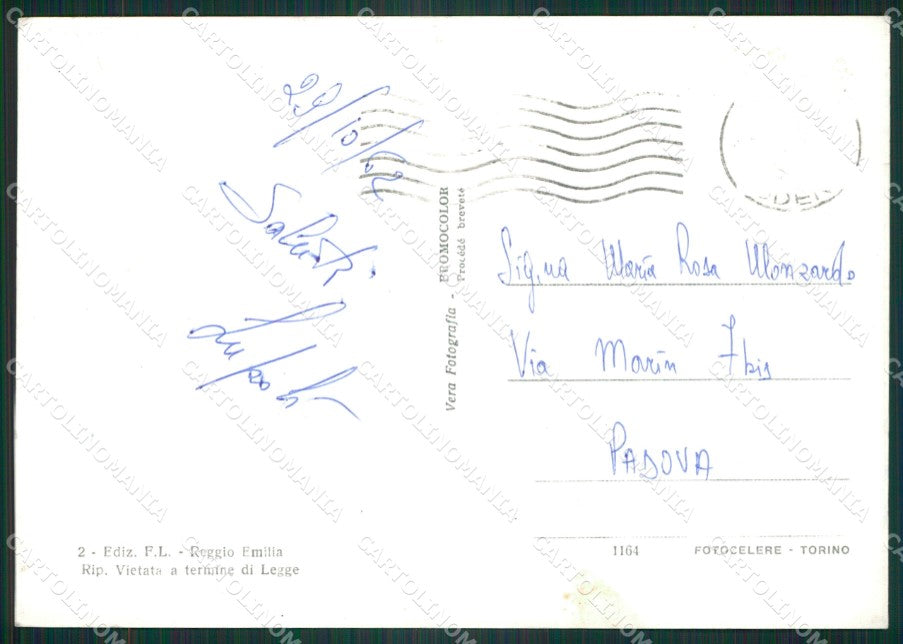 29/10/62
Saluti
Vera Fotografia - PROMOCOLOR
Procédé breveté
Sig.na Maria Rosa Monzardo
Via Marin 7bis
PADOVA
2 - Ediz. F.L. - Reggio Emilia
Rip. Vietata a termine di Legge
1164 FOTOCELERE - TORINO
CARTOLINOMANIA